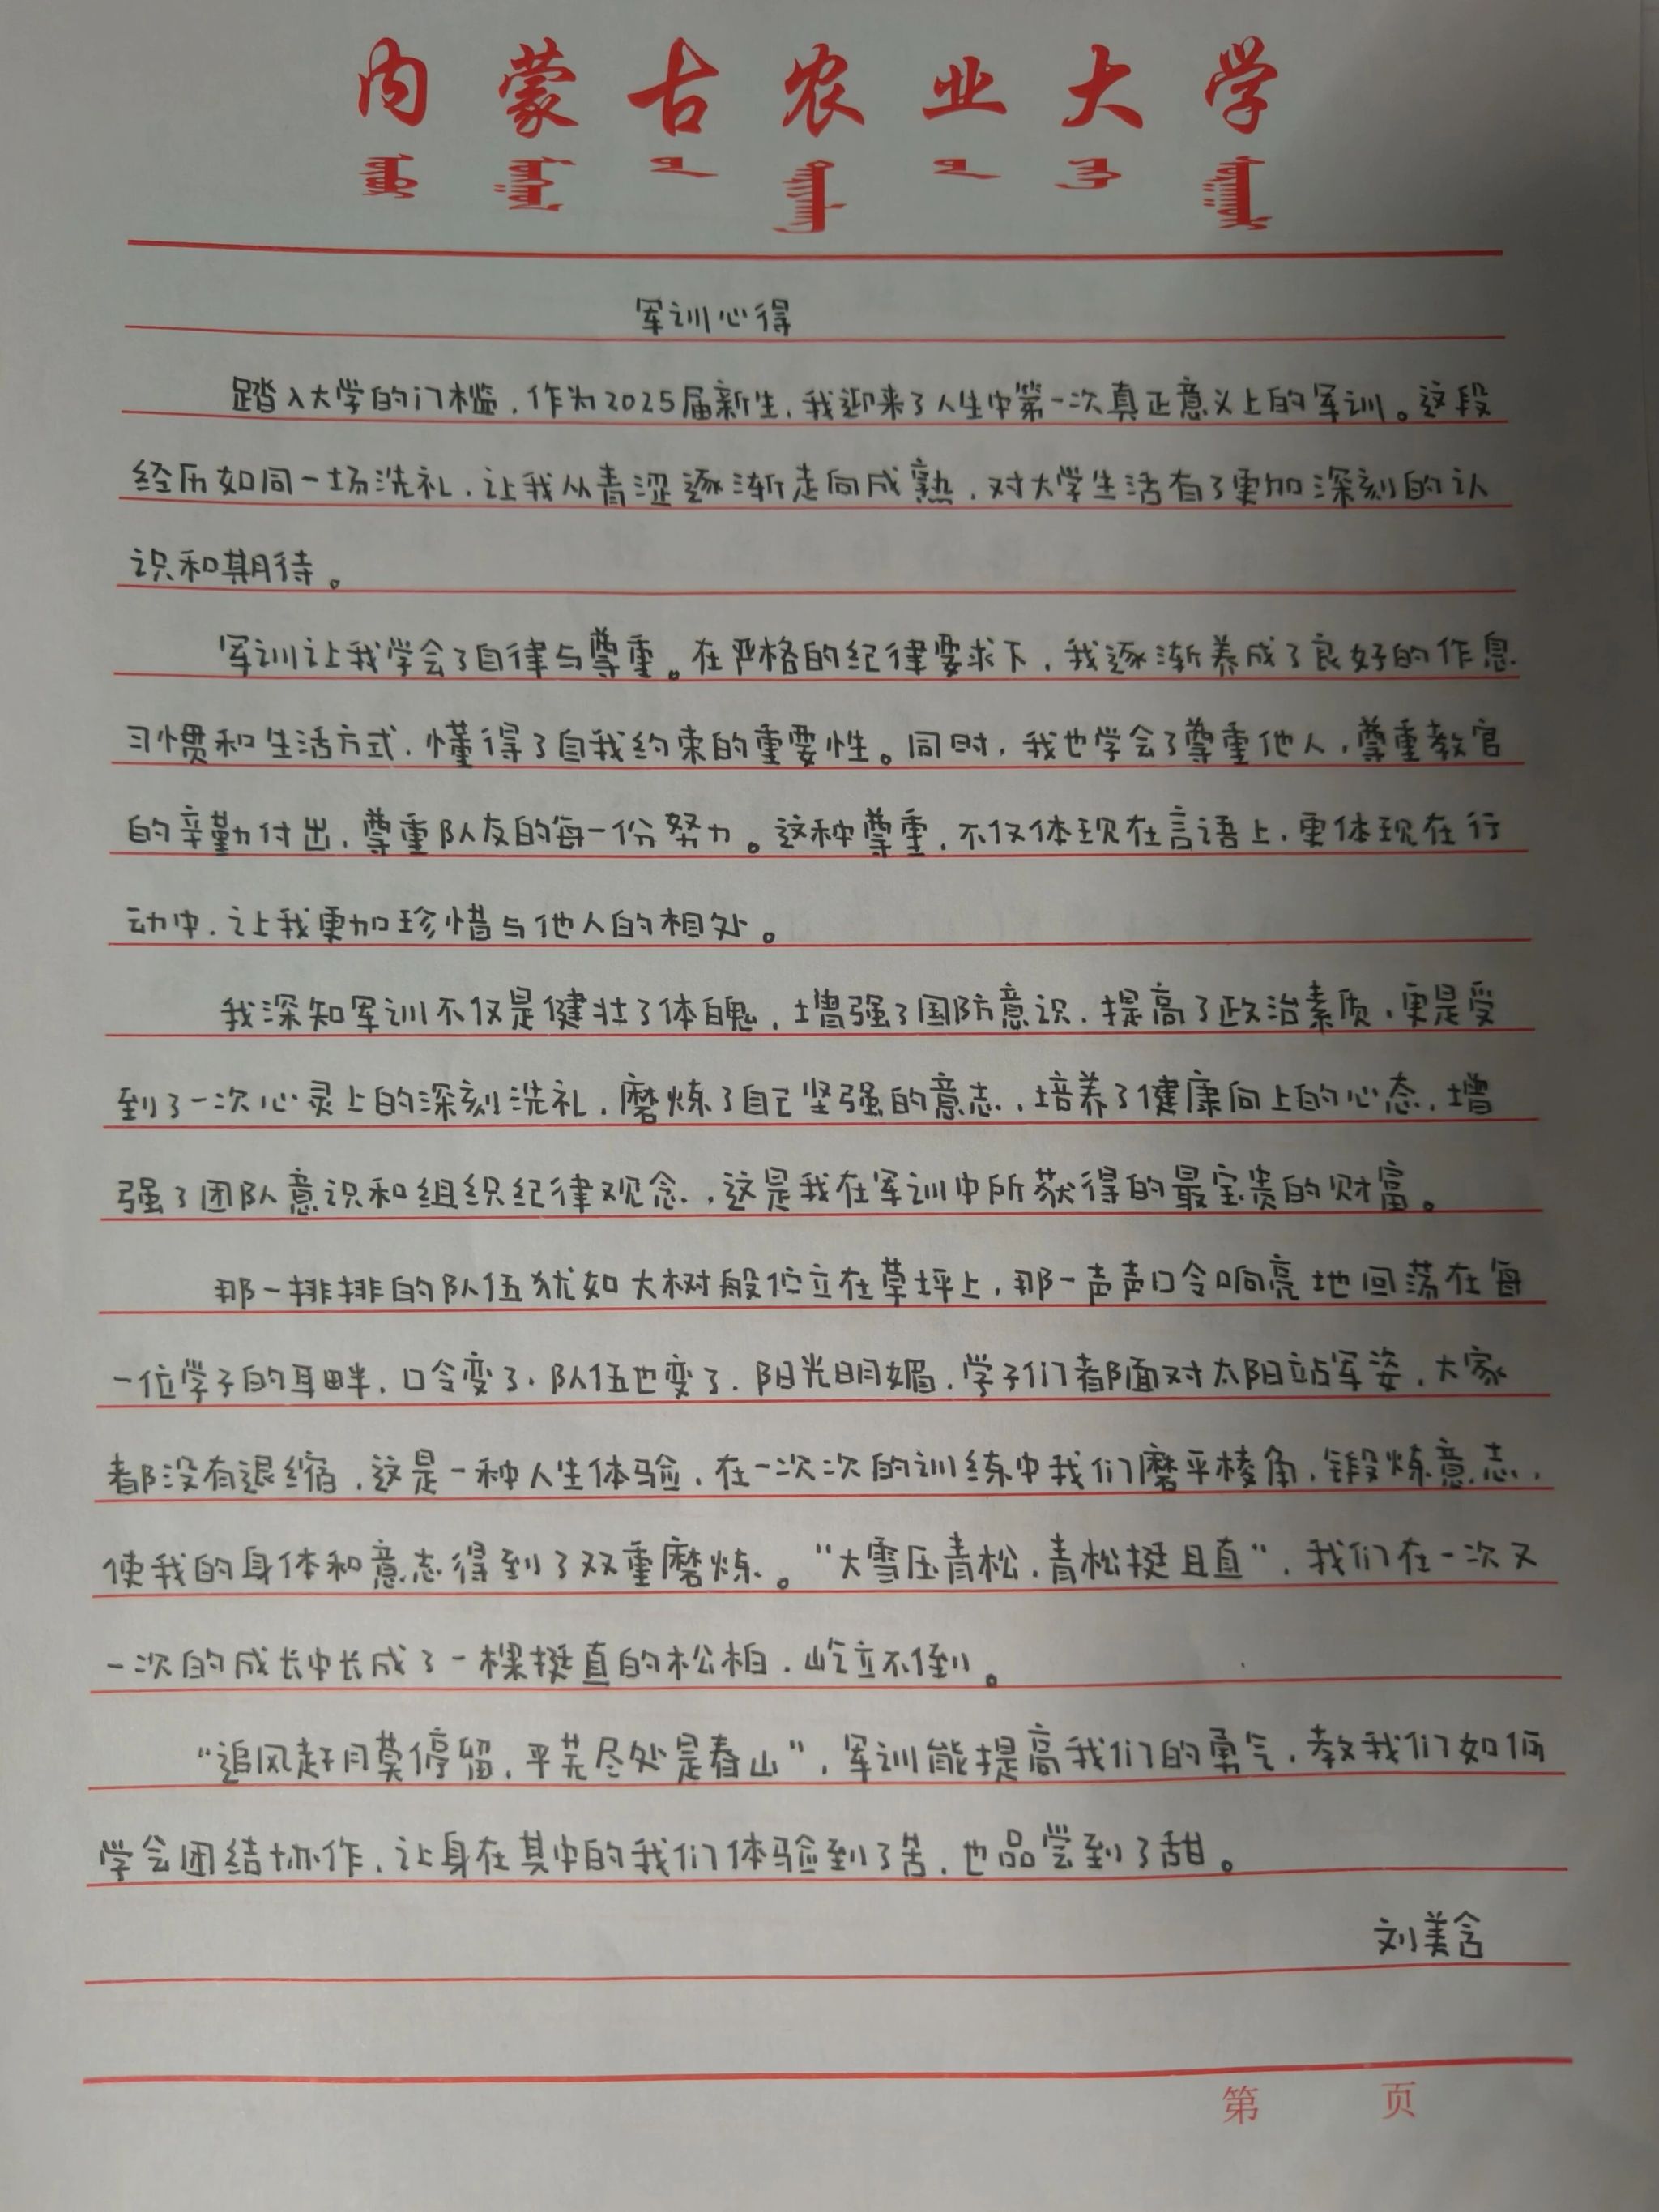 内蒙古农业大学
军训心得
踏入大学的门槛,作为2025届新生,我迎来了人生中第一次真正意义上的军训。这段
经历如同一场洗礼,让我从青涩逐渐走向成熟,对大学生活有了更加深刻的认
识和期待。
军训让我学会了自律与尊重。在严格的纪律要求下,我逐渐养成了良好的作息
习惯和生活方式,懂得了自我约束的重要性。同时,我也学会了尊重他人,尊重教官
的辛勤付出,尊重队友的每一份努力。这种尊重,不仅体现在言语上,更体现在行
动中,让我更加珍惜与他人的相处。
我深知军训不仅是健壮了体魄,增强了国防意识,提高了政治素质,更是受
到了一次心灵上的深刻洗礼,磨炼了自己坚强的意志,培养了健康向上的心态,增
强了团队意识和组织纪律观念,这是我在军训中所获得的最宝贵的财富。
那一排排的队伍犹如大树般伫立在草坪上,那一声声口令响亮地回荡在每
一位学子的耳畔,口令变了,队伍也变了,阳光明媚,学子们都面对太阳站军姿,大家
都没有退缩,这是一种人生体验,在一次次的训练中我们磨平棱角,锻炼意志,
使我的身体和意志得到了双重磨炼。“大雪压青松,青松挺且直”,我们在一次又
一次的成长中长成了一棵挺直的松柏,屹立不倒。
“追风赶月莫停留,平芜尽处是春山”,军训能提高我们的勇气,教我们如何
学会团结协作,让身在其中的我们体验到了苦,也品尝到了甜。
刘美含
第 页